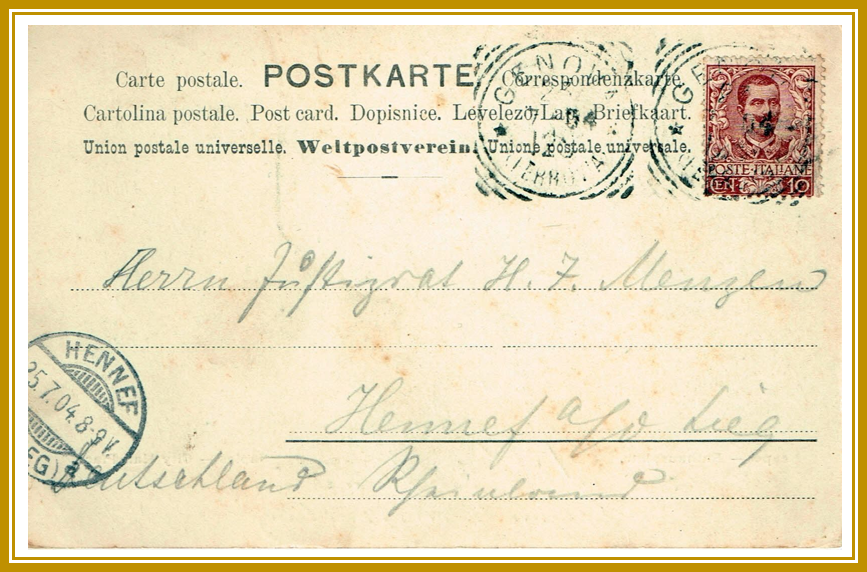 Carte postale. POSTKARTE Correspondenzkarte.
Cartolina postale. Post card. Dopisnice. Levelező-Lap. Briefkaart.
Union postale universelle. Weltpostverein. Unione postale universale.
GENOVA
04
(FERROVIA)
GE
04
POSTE·ITALIANE
CENT. 10
Herrn Justizrat H. J. Menzen
HENNEF
25.7.04.8-9V.
EG) a
Hennef a/d Sieg
Deutschland Rheinland